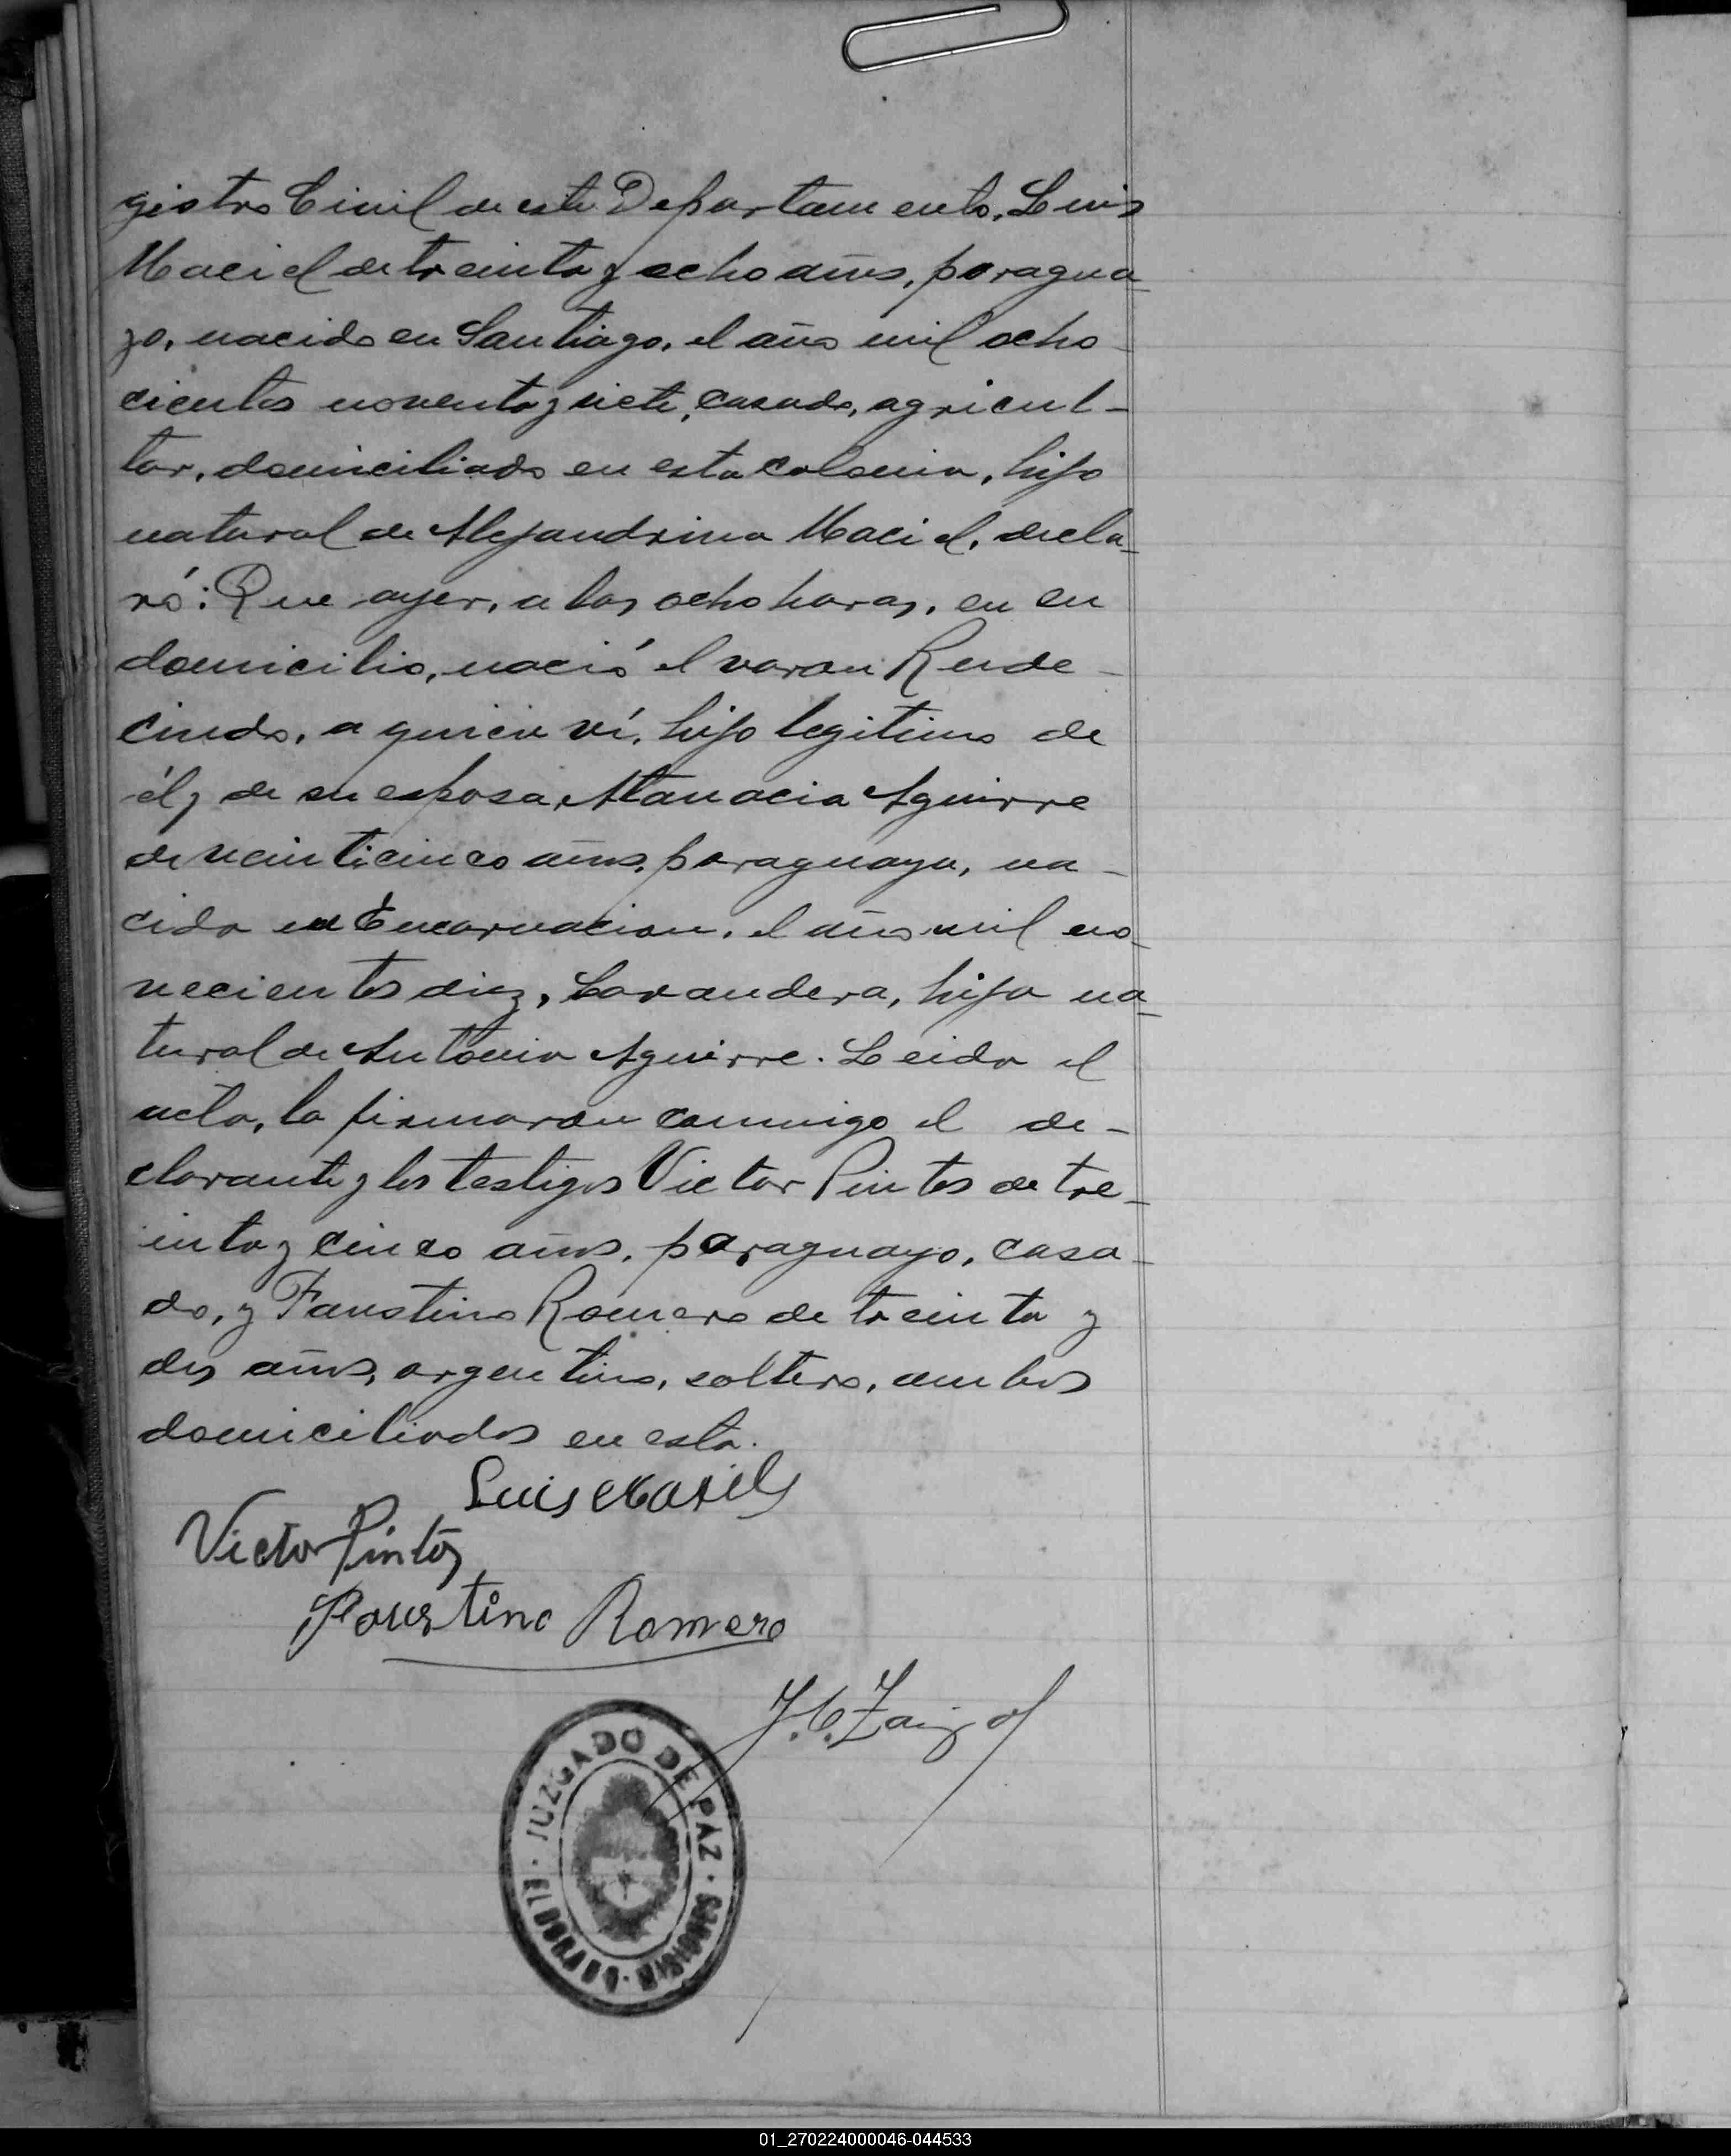 gistro Civil de este Departamento, Luis
Maciel de treinta y ocho años, paragua-
yo, nacido en Santiago, el año mil ocho-
cientos noventa y siete, casado, agricul-
tor, domiciliado en esta colonia, hijo
natural de Alejandrina Maciel, decla-
ró: Que ayer, a las ocho horas, en su
domicilio, nació el varon Rude-
cindo, a quien ví, hijo legitimo de
él y de su esposa, Atanacia Aguirre
de veinticinco años, paraguaya, na-
cida en Encarnacion, el año mil no-
vecientos diez, lavandera, hija na-
tural de Antonia Aguirre. Leida el
acta, la firmaron conmigo el de-
clarante y los testigos Victor Pintos de tre-
inta y cinco años, paraguayo, casa-
do, y Faustino Romero de treinta y
dos años, argentino, soltero, ambos
domiciliados en esta.
Luis Masiel
Victor Pintos
Faustino Romero
JUZGADO DE PAZ
ELDORADO · MISIONES
01_270224000046-044533